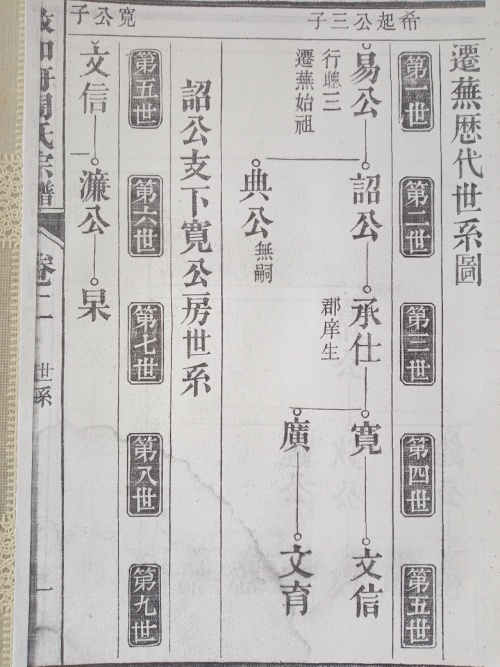 遷蕪歷代世系圖
第一世
第二世
第三世
第四世
第五世
希起公三子
易公
行聰三
遷蕪始祖
詔公
承仕
郡庠生
寬
文信
典公
無嗣
廣
文育
詔公支下寬公房世系
第五世
第六世
第七世
第八世
第九世
寬公子
文信
濂公
杲
周氏宗譜
卷二
世系
一